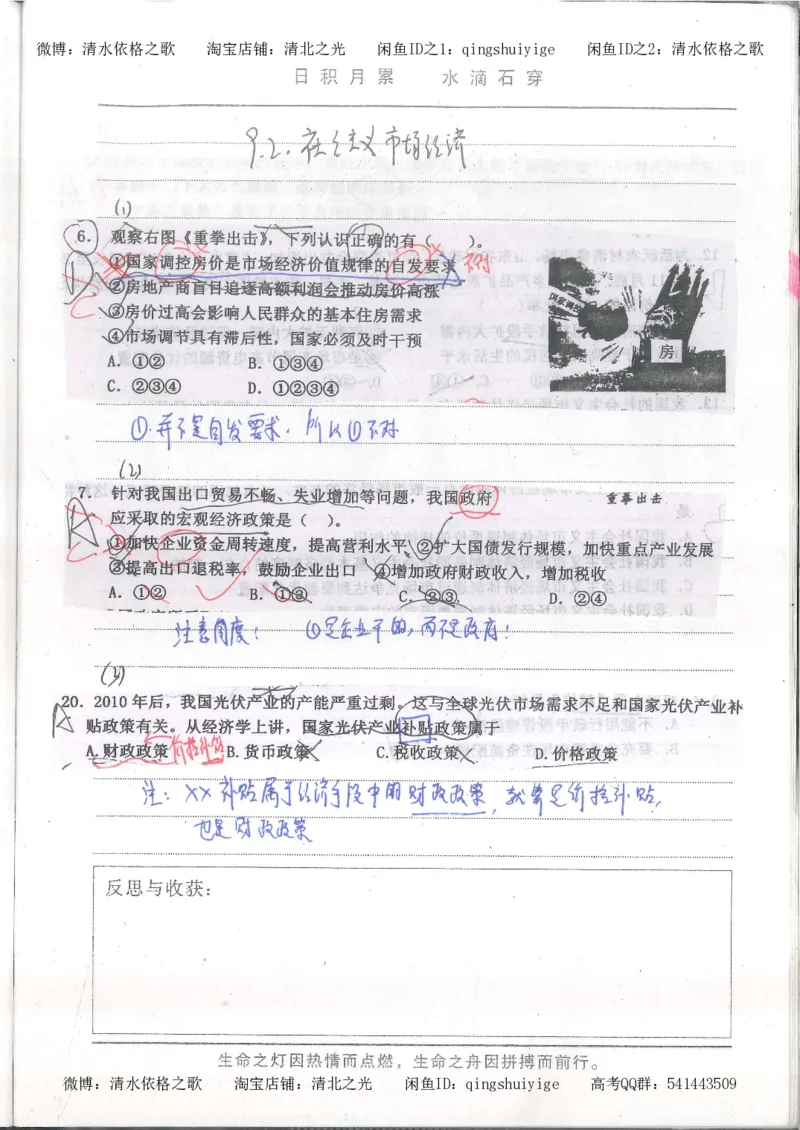 微博：清水依格之歌 淘宝店铺：清北之光 闲鱼ID之1：qingshuiyige 闲鱼ID之2：清水依格之歌
日积月累 水滴石穿
9.2.社会主义市场经济
(1)
6. 观察右图《重拳出击》，下列认识正确的有（ ）。
①国家调控房价是市场经济价值规律的自发要求 不对
②房地产商盲目追逐高额利润会推动房价高涨
③房价过高会影响人民群众的基本住房需求
④市场调节具有滞后性，国家必须及时干预
A. ①② B. ①③④
C. ②③④ D. ①②③④
国家调控
房
①.并不是自发要求．所以①不对
(2)
重拳出击
7. 针对我国出口贸易不畅、失业增加等问题，我国政府
应采取的宏观经济政策是（ ）。
①加快企业资金周转速度，提高营利水平 ②扩大国债发行规模，加快重点产业发展
③提高出口退税率，鼓励企业出口 ④增加政府财政收入，增加税收
A. ①② B. ①③ C. ②③ D. ②④
注意角度！ ①是企业干的，而不是政府！
(3)
20. 2010年后，我国光伏产业的产能严重过剩。这与全球光伏市场需求不足和国家光伏产业补
贴政策有关。从经济学上讲，国家光伏产业补贴政策属于
A.财政政策 价格补贴 B.货币政策 C.税收政策 D.价格政策
注：XX补贴属于经济手段中的财政政策，就算是价格补贴，
也是财政政策
反思与收获：
生命之灯因热情而点燃，生命之舟因拼搏而前行。
微博：清水依格之歌 淘宝店铺：清北之光 闲鱼ID：qingshuiyige 高考QQ群：541443509